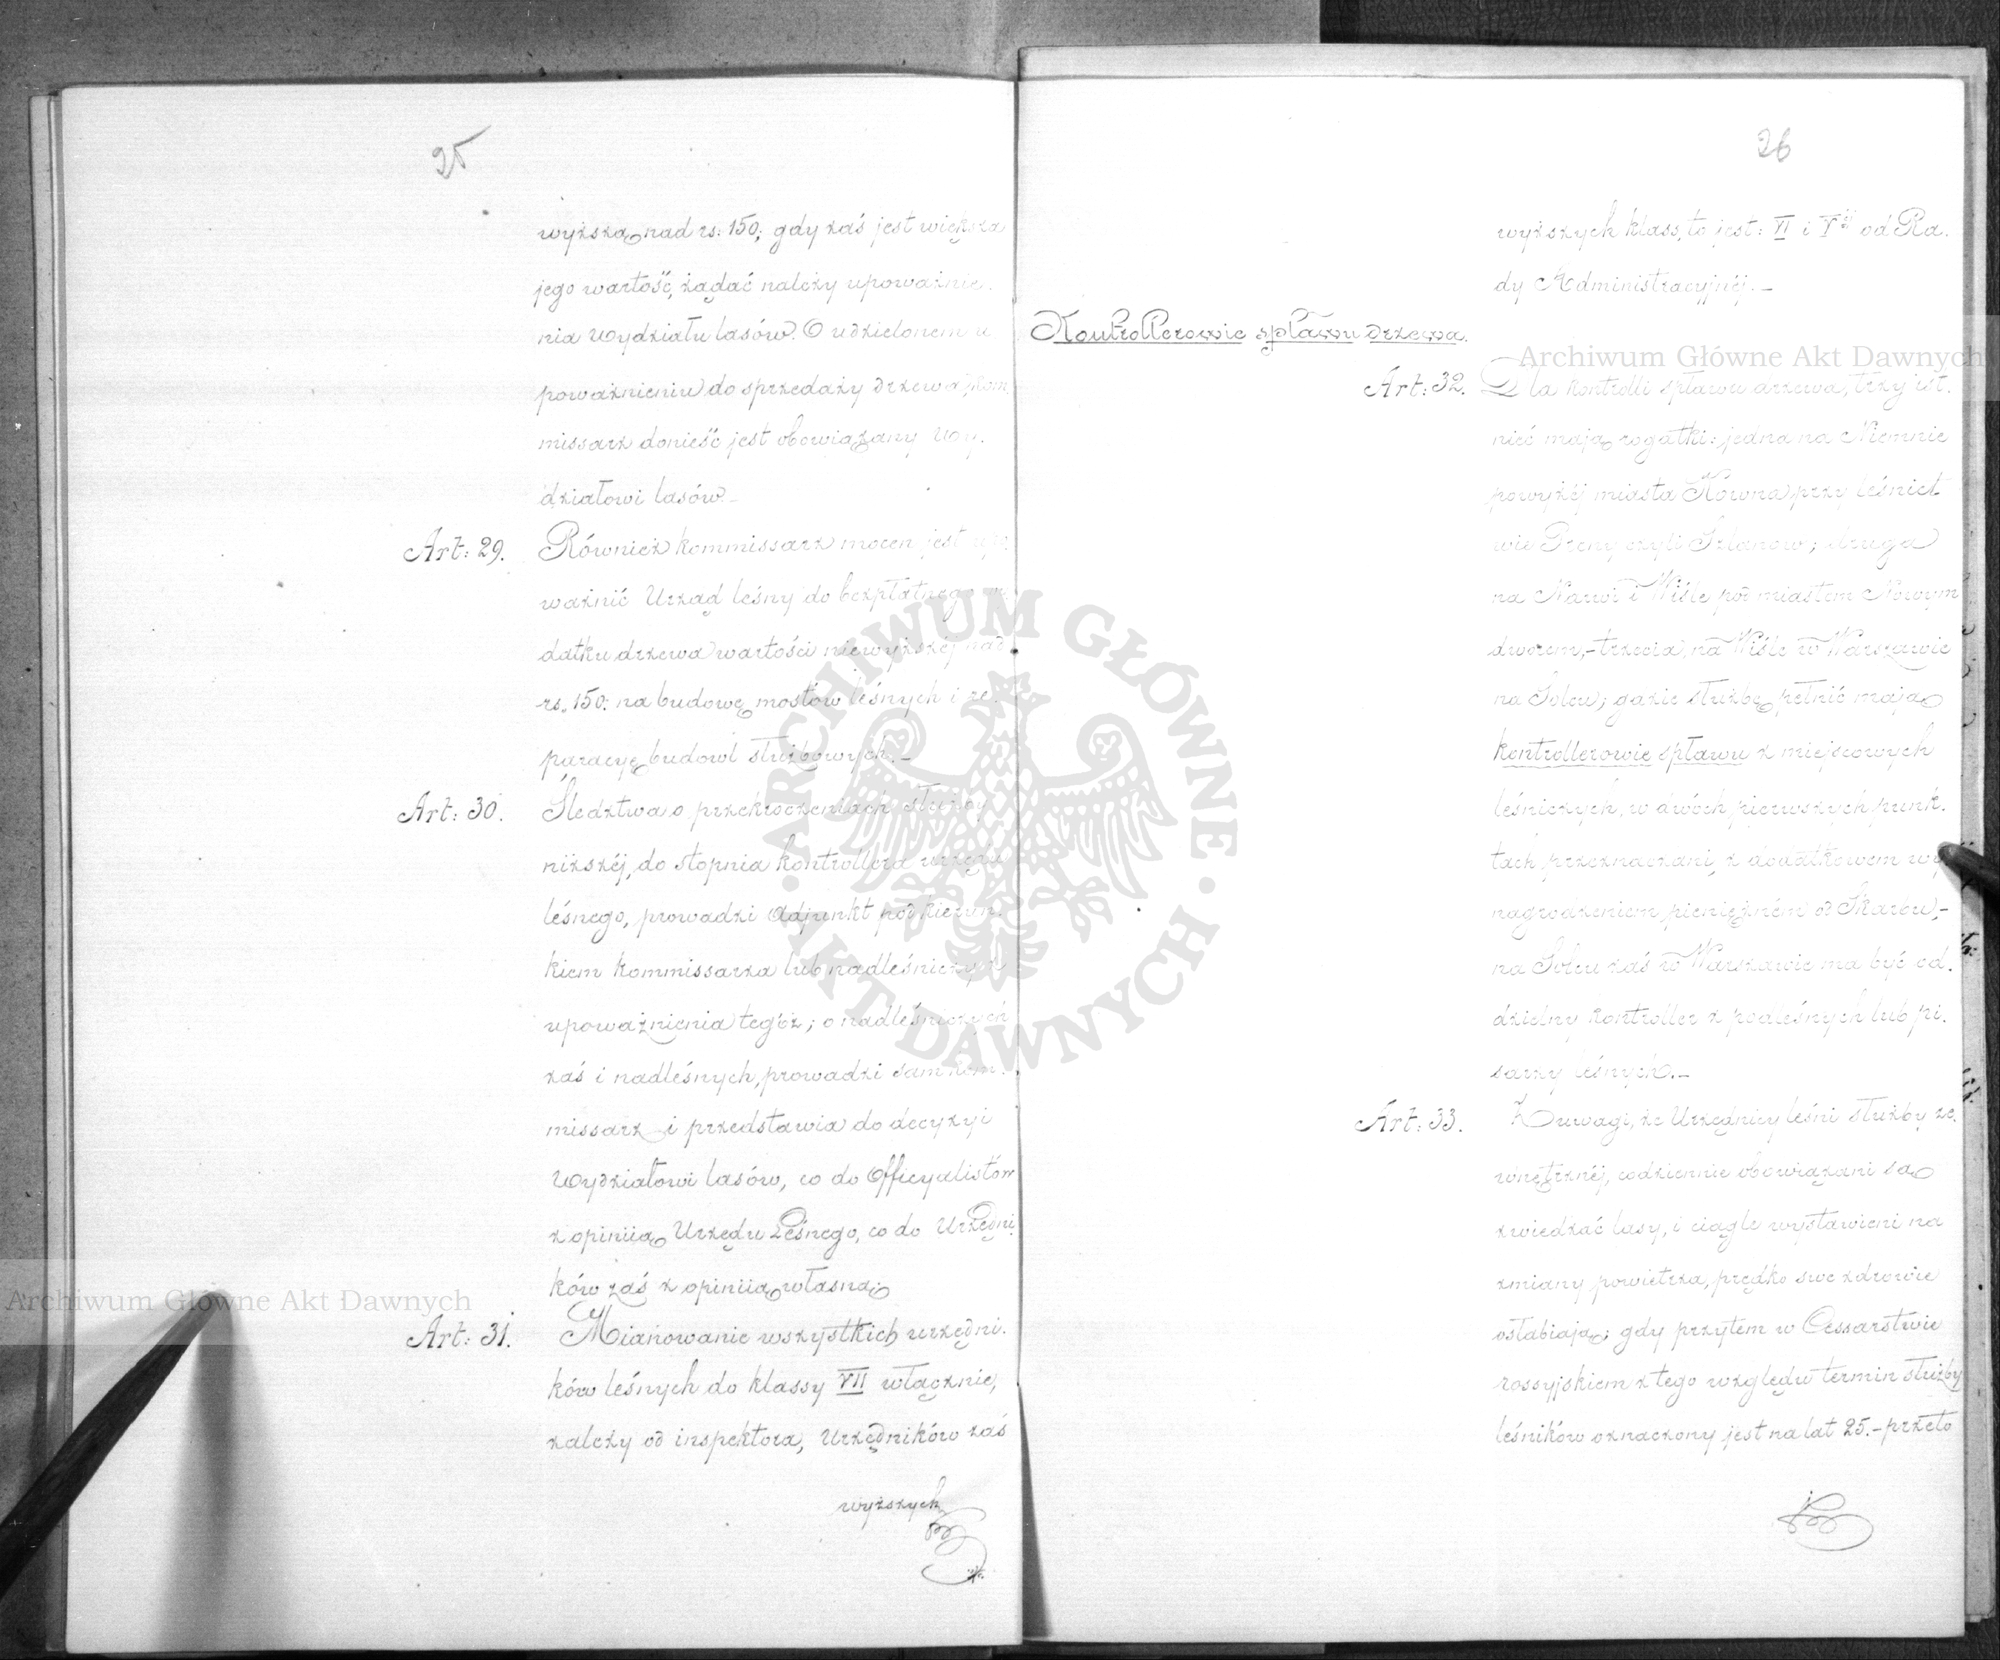 25
wyższą nad rs: 150; gdy zaś jest większa
jego wartość, żądać należy upoważnie.
nia Wydziału lasów. O udzielonem u
poważnieniu do sprzedaży drzewa, Kom
missarz donieść jest obowiązany Wy.
działowi lasów.–
Art: 29. Również kommissarz mocen jest upo
ważnić Urząd leśny do bezpłatnego wy
datku drzewa wartości niewyższéj nad
rs. 150: na budowę mostów leśnych i re.
paracyę budowl służbowych.–
Art: 30. Śledztwa o przekroczeniach służby
niższéj, do stopnia kontrollera urzędu
leśnego, prowadzi Adjunkt pod kierun.
kiem kommissarza lub nadleśniczy z
upoważnienia tegóż; o nadleśniczych
zaś i nadleśnych, prowadzi sam kom.
missarz i przedstawia do decyzyi
Wydziałowi lasów, co do Officyalistów
z opiniią Urzędu Leśnego, co do Urzędni.
ków zaś z opiniią własną.
Art: 31. Mianowanie wszystkich urzędni.
ków leśnych do klassy VII włącznie,
zależy od inspektora, Urzędników zaś
wyższych
26
wyższych klass, to jest: VI i V éj od Ra.
dy Administracyjnéj.–
Kontrollerowie spławu drzewa.
Art: 32. Dla kontrolli spławu drzewa, trzy ist.
nieć mają rogatki: jedna na Niemnie
powyżéj miasta Kowna, przy leśnict
wie Preny czyli Szlanow; druga
na Narwi i Wiśle pod miastem Nowym
dworem,– trzecia, na Wiśle w Warszawie
na Solcu; gdzie służbę pełnić mają
kontrollerowie spławu z miejscowych
leśniczych, w dwóch pierwszych punk.
tach przeznaczani, z dodatkowem wy
nagrodzeniem pieniężném od Skarbu,–
na Solcu zaś w Warszawie ma być od.
dzielny kontroller z podleśnych lub pi.
sarzy leśnych.–
Art: 33. Z uwagi, że Urzędnicy leśni służby ze.
wnętrznéj, codziennie obowiązani są
zwiedzać lasy, i ciągle wystawieni na
zmiany powietrza, prędko swe zdrowie
osłabiają; gdy przytem w Cessarstwie
rossyjskiem z tego względu termin służby
leśników oznaczony jest na lat 25.– przeto
Archiwum Główne Akt Dawnych
Archiwum Główne Akt Dawnych
ARCHIWUM GŁÓWNE
AKT DAWNYCH